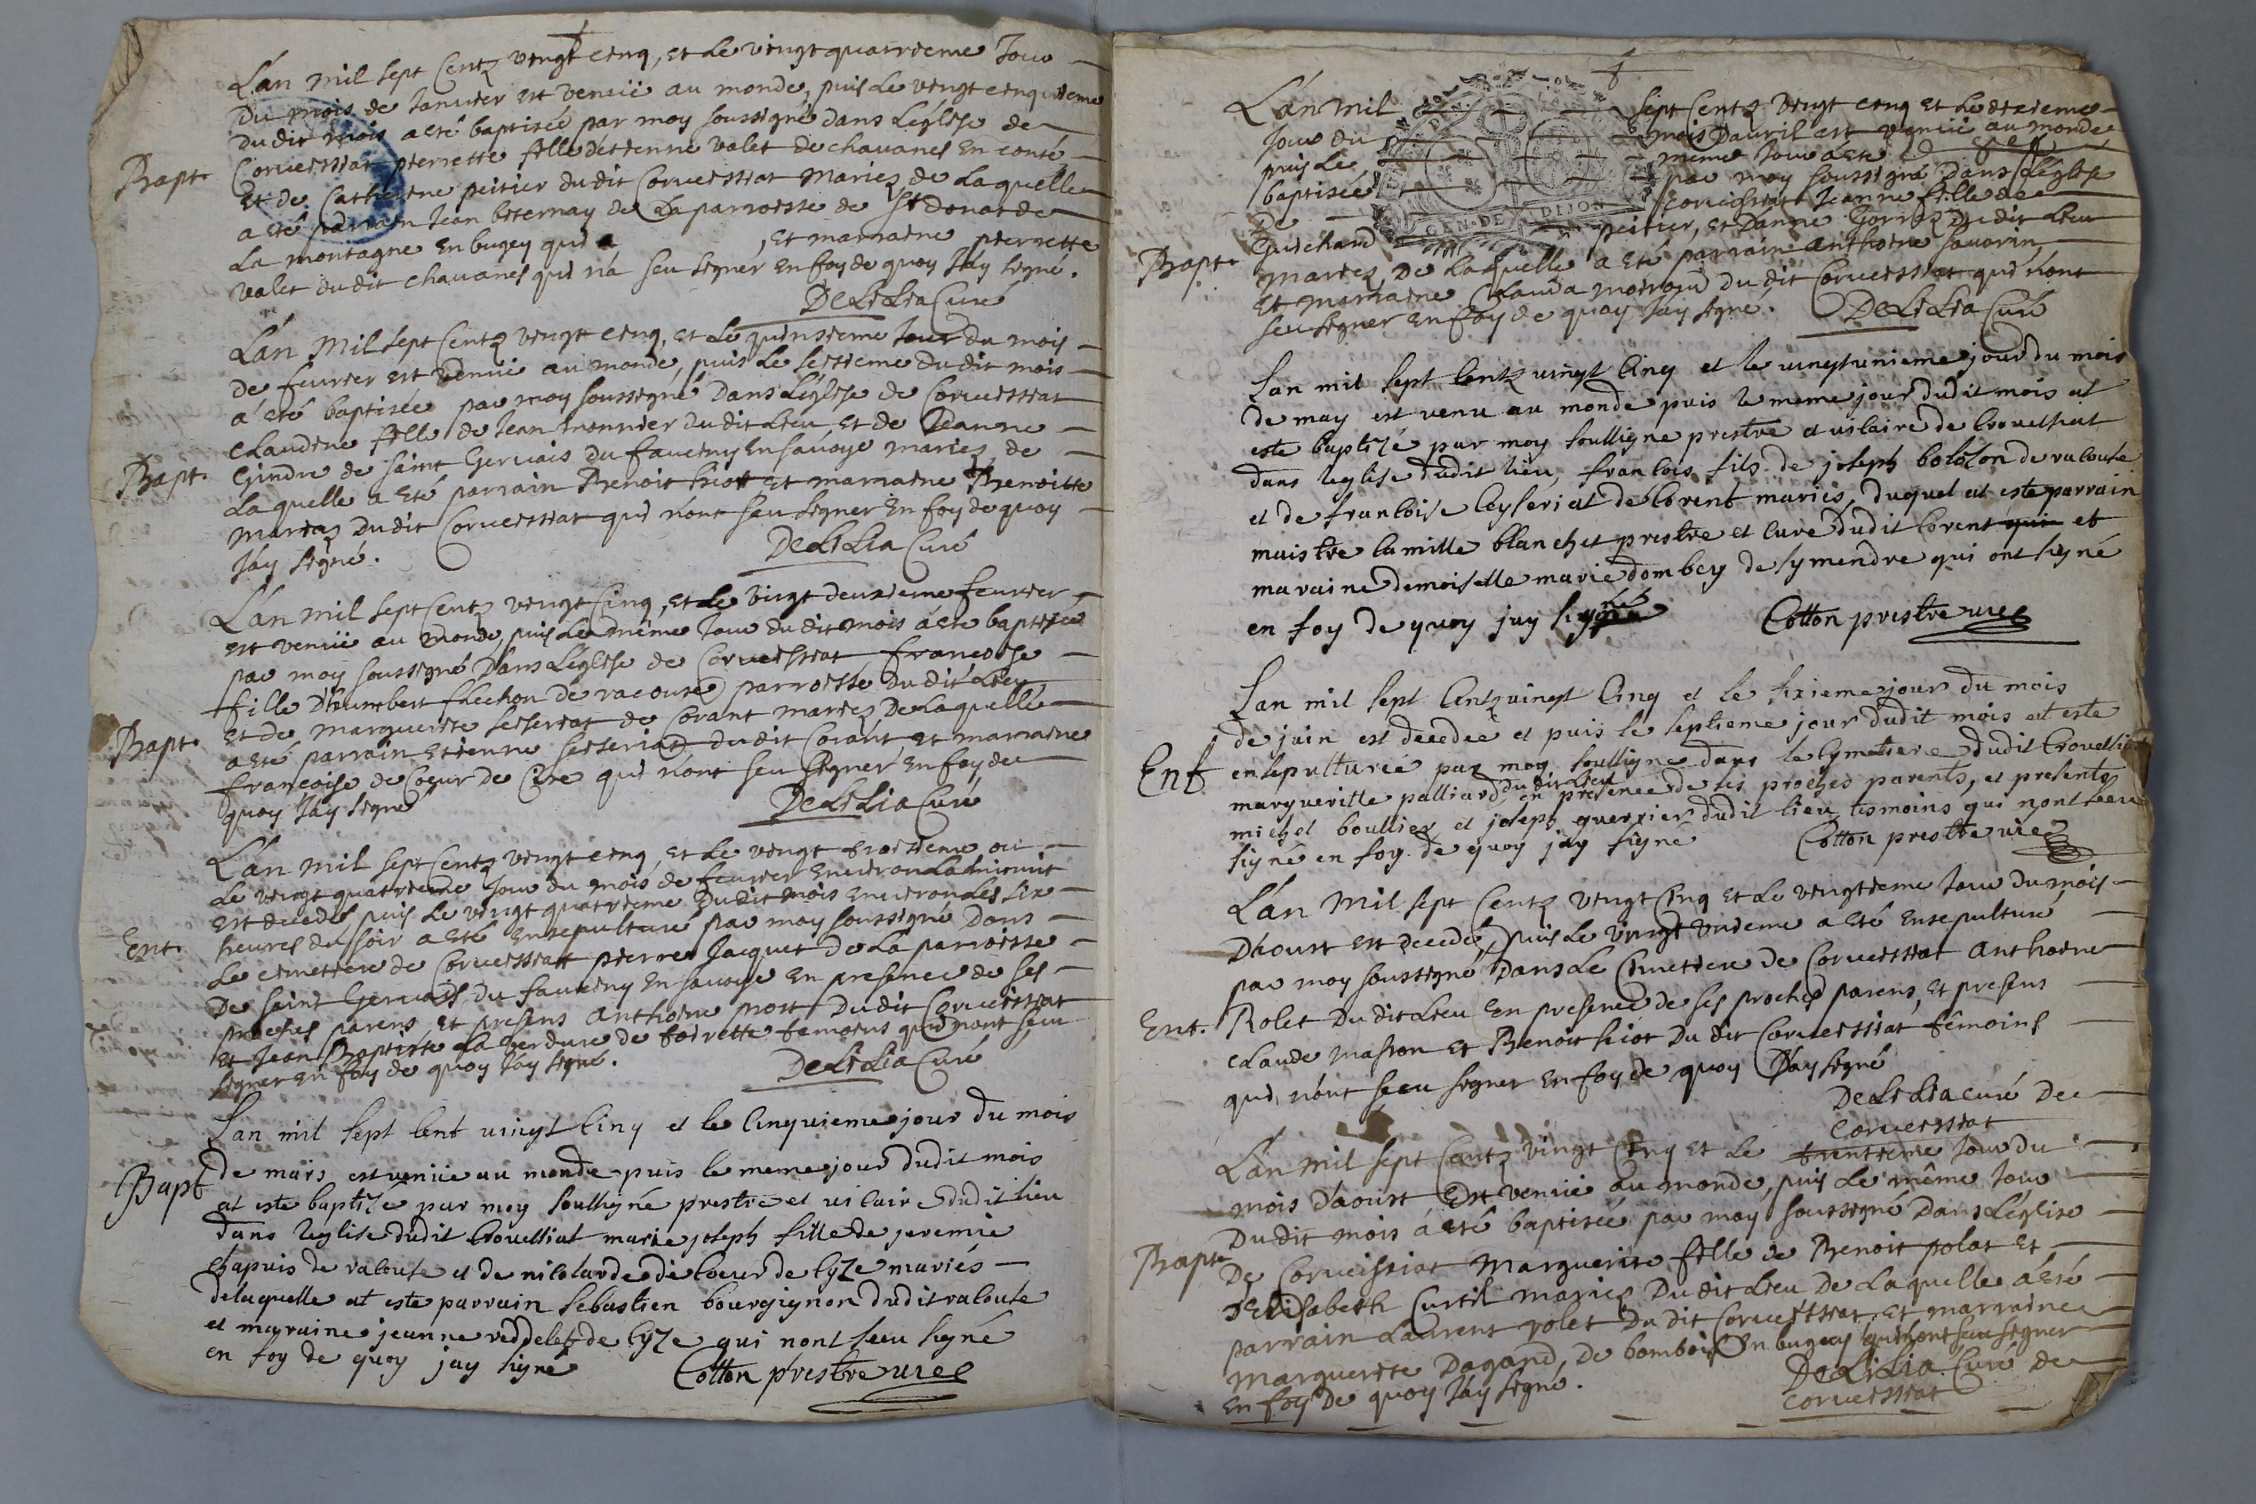 L'an mil sept Centz vengt cenq, et le vengtquatrieme Jour
Du mois de Janvier est venuë au monde, puis le vengt cenquieme
du dit mois a eté baptisée par moy soussigné dans L'église de
Bapt. Corveissiat pierrette fille detienne valet de chavanes en conté
et de Catherene peitier du dit Corveissiat mariez de laquelle
a eté parrain Jean beternay de La parroisse de St Donat de
La montagne en bugey qui a , et marraine pierrette
valet du dit chavanes qui n'a seu segner en foy de quoy J'ay segné.
DeLiLia Curé
L'an mil sept Centz vengt cenq, et le quensieme Jour du mois
de feuvrier est venuë au monde, puis le seizieme du dit mois
a eté baptisée par moy soussigné Dans L'église de Corveissiat
claudine fille de Jean monnier du dit Lieu et de Jeanne
Bapt. Gindre de saint Gervais du fauceny en savoye mariez de
Laquelle a eté parrain Benoit hiot et marraine Benoitte
Mariaz du dit Corveissiat qui n'ont seu segner en foy de quoy
J'ay segné.
DeLiLia Curé
L'an mil sept Centz vengt Cinq, et le vingt deuxieme feuvrier
est venuë au monde, puis le même Jour du dit mois a eté baptisée
par moy soussigné Dans L'église de Corveissiat francoise
fille D'humbert flechon de racouse parroisse du dit Lieu
et de Marguerite seiseriat de Corant mariez De laquelle
Bapt. a eté parrain etienne seiseriat du dit Corant, et marraine
francoise de Coeur de Cize qui n'ont seu segner en foy de
quoy J'ay segné
DeLiLia Curé
L'an mil sept Centz vengt cenq, et le vengt troisieme ou
Le vengt quatrieme Jour du mois de feuvrier environ La minuit
est decedé, puis le vengt quatrieme Du dit mois environ Les six
heures du soir a eté ensepulturé par moy soussigné Dans
Ent. Le cemettiere de Corveissiat pierre Jacquet de La parroisse
De saint Gervais du fauceny en savoye en presence de ses
proches parens, et presens anthoine prost du dit Corveissiat
et Jean Baptiste La verdure de toirette temoins qui n'ont seu
segner en foy de quoy J'ay segné.
DeLiLia Curé
Lan mil sept cent vingt cinq et le cinquieme jour du mois
Bapt de mars est venüe au monde puis le meme jour dudit mois
at este baptizé par moy soussigné prestre et vicaire dudit lieu
dans leglise dudit Crouessiat marie joseph fille de jeremie
Chapuis de racouse et de nicolarde de coeur de cyze mariés
delaquelle at este parrain sebastien bourgignon dudit racouse
et maraine jeanne reddelet de cyze qui nont sceu signé
en foy de quoy jay signé Cotton prestre vice
L'an mil sept Centz vengt cenq et le dexieme
Jour du mois Davril est venuë au monde
puis le meme Jour a eté
baptisée par moy soussigné Dans L'église
De Corveissiat Jeanne fille de
Guichard peitier, et Danne Gorraz Du dit Lieu
Bapt. mariez De laquelle a eté parrain anthoine savarin
et marraine Clauda moirod du dit Corveissiat qui n'ont
seu segner en foy de quoy J'ay segné. DeLiLia Curé
Lan mil sept centz vingt cinq et le vingtunieme jour du mois
de may est venu au monde puis le meme jour dudit mois at
este baptizé par moy soussigne prestre et vicaire de Crouessiat
dans leglise dudit lieu, francois fils de joseph bolozon de racouse
et de francoise ceyseriat de Corent mariés, duquel at este parrain
maistre Camille blanchet prestre et curé dudit Corent qui et
maraine demoiselle marie dombey de symendre qui ont signé
en foy de quoy jay signé Cotton prestre vice
Lan mil sept centz vingt cinq et le sixieme jour du mois
de juin est decedée et puis le septieme jour dudit mois at este
Ent ensepulturée par moy soussigne dans le cymetiere dudit Crouessiat
margueritte palliard du dit Lieu en presence de ses proches parents, et presents
michel boullier et joseph querrier dudit lieu tesmoins qui nont sceu
signé en foy de quoy jay signé Cotton prestre vice
L'an mil sept Centz vengt Cenq et le vengtieme Jour du mois
D'aoust est decedé, puis le vengt unieme a eté ensepulturé
par moy soussigné Dans Le Cimettiere de Corveissiat anthoine
Ent. Rolet Du dit Lieu en presence de ses proches parens, et presens
claude masson et Benoit hiot Du dit Corveissiat têmoins
qui n'ont seeu segner en foy de quoy J'ay segné
DeLiLia curé De
Corveissiat
L'an mil sept Centz vingt Cenq et Le trentieme Jour du
mois D'aoust est venuë au monde, puis Le même Jour
Du dit mois a eté baptisée par moy soussigné Dans L'église
Bapt. De Corveissiat Marguerite fille de Benoit polat et
D'Elisabeth Curtil mariez Du dit Lieu De Laquelle a eté
parrain Laurent rolet Du dit Corveissiat, et marraine
Marguerite Dagand, De bombois en bugey qui n'ont seu segner
En foy De quoy J'ay segné. DeLiLia Curé de
Corveissiat